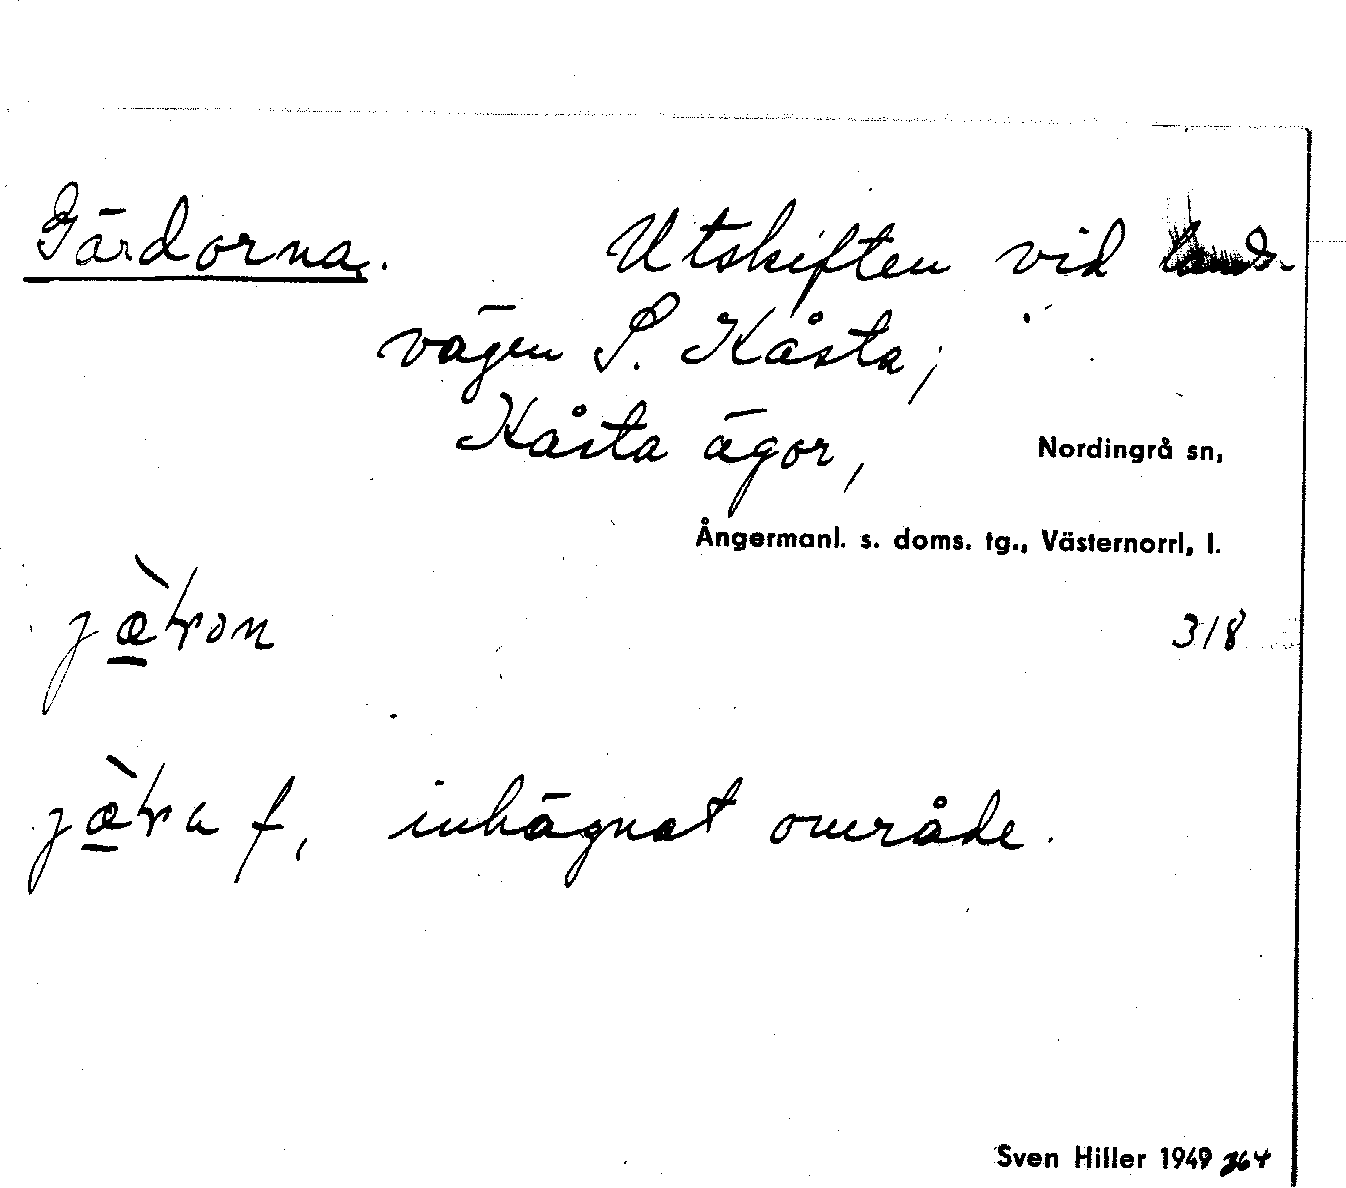 Gärdorna. Utskiften vid lands-
vägen S. Kåsta,
Kåsta ägor, Nordingrå sn,
Ångermanl. s. doms. tg., Västernorrl. l.
318
f, inhägnat område.
Sven Hiller 1949 264